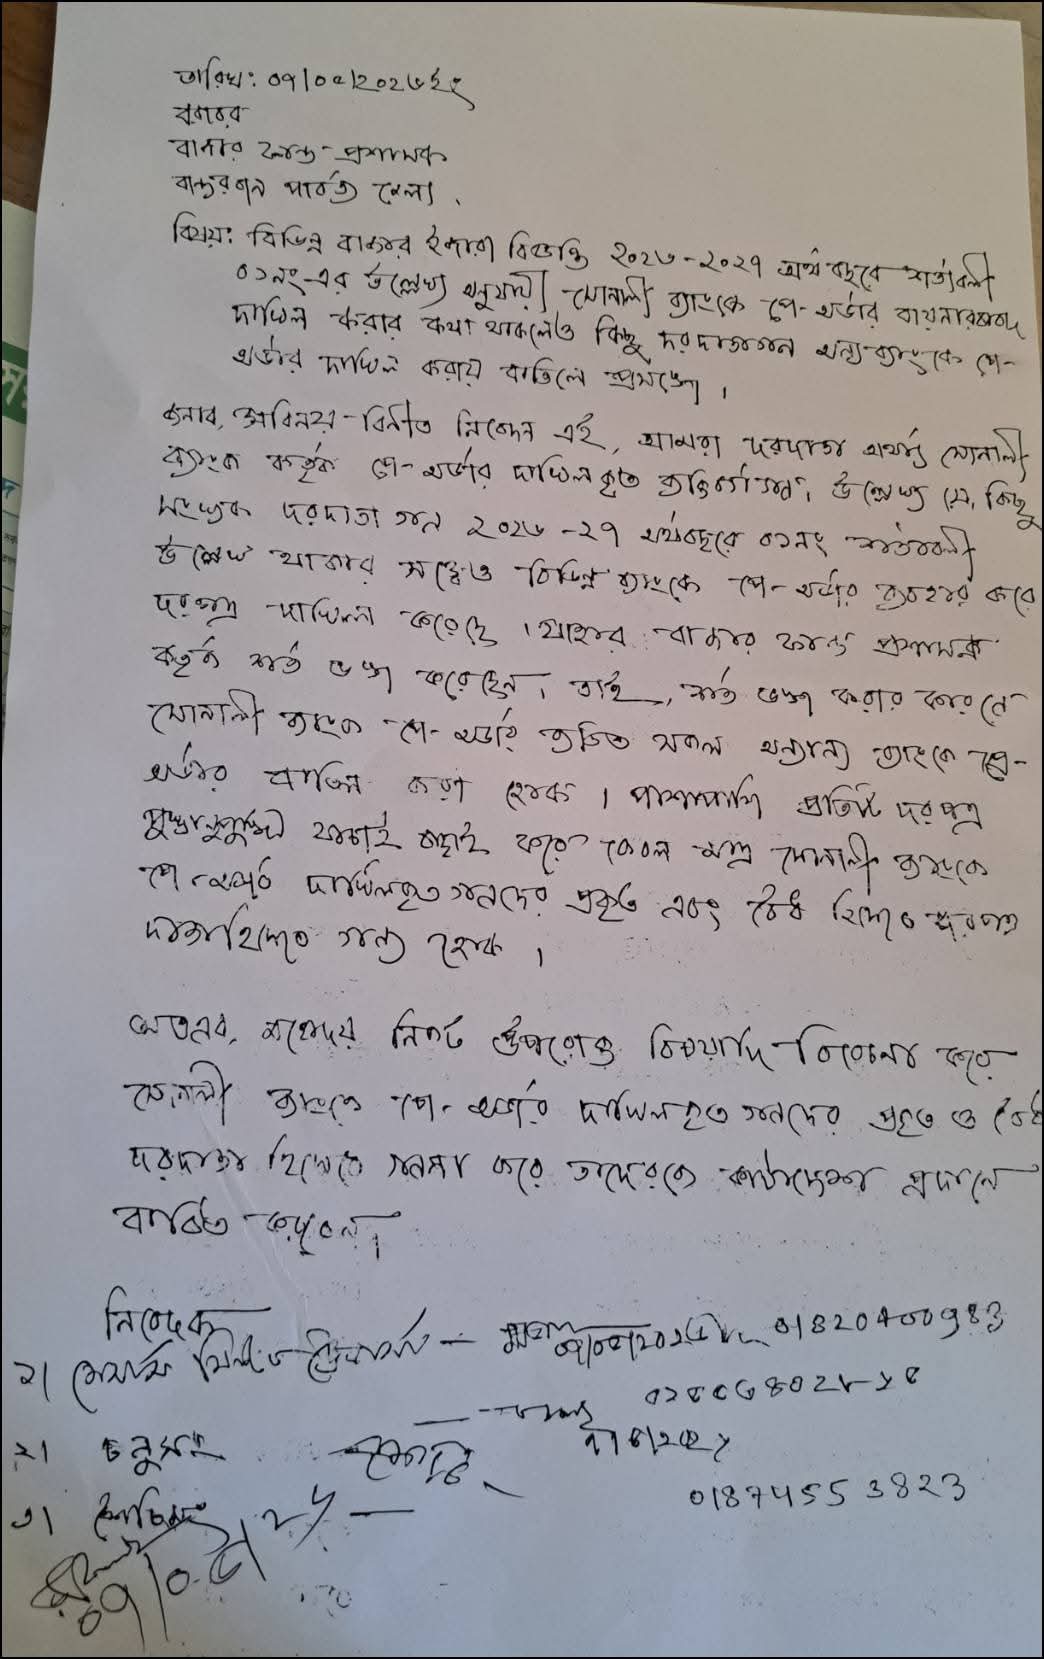 তারিখ: ০৭/০৫/২০২৬ইং
বরাবর
বাজার ফান্ড-প্রশাসক
বান্দরবান পার্বত্য জেলা।
বিষয়: বিভিন্ন বাজার ইজারা বিজ্ঞপ্তি ২০২৬-২০২৭ অর্থ বছরে শর্তাবলী
০১নং-এর উল্লেখ্য অনুযায়ী সোনালী ব্যাংকে পে-অর্ডার বায়নার
দাখিল করার কথা থাকলেও কিছু দরদাতাগন অন্য ব্যাংকে পে-
অর্ডার দাখিল করায় বাতিল প্রসঙ্গে।
জনাব, সবিনয়-বিনীত নিবেদন এই, আমরা দরদাতা সোনালী
ব্যাংক কর্তৃক পে-অর্ডার দাখিলকৃত ব্যক্তিবর্গগন। উল্লেখ্য যে, কিছু
সংখ্যক দরদাতা গন ২০২৬-২৭ অর্থবছরে ০১নং শর্তাবলী
উল্লেখ থাকার সত্ত্বেও বিভিন্ন ব্যাংকে পে-অর্ডার ব্যবহার করে
দরপত্র দাখিলা করেছে। যাহার বাজার ফান্ড প্রশাসক
কর্তৃক শর্ত ভঙ্গ করেছেন। তাই, শর্ত ভঙ্গ করার কারনে
সোনালী ব্যাংক পে-অর্ডার ব্যতিত সকল অন্যান্য ব্যাংকে পে-
অর্ডার বাতিল করা হোক। পাশাপাশি প্রতিটি দরপত্র
পুঙ্খানুপুঙ্খ যাচাই বাছাই করে কেবল মাত্র সোনালী ব্যাংকে
পে-অর্ডার দাখিলকৃতগনদের প্রকৃত এবং বৈধ হিসেবে দরপত্র
দাতা হিসেবে গন্য হোক।
অতএব, মহোদয় নিকট উপরোক্ত বিষয়াদি বিবেচনা করে
সোনালী ব্যাংকে পে-অর্ডার দাখিলকৃতগনদের প্রকৃত ও বৈধ
দরদাতা হিসেবে গননা করে তাদেরকে কার্যাদেশ প্রদানে
বাধিত করবেন।
নিবেদক
১। মেসার্স ট্রেডার্স - 01820400983
২।
৩। 01874553823
০৭/০৫/২৬